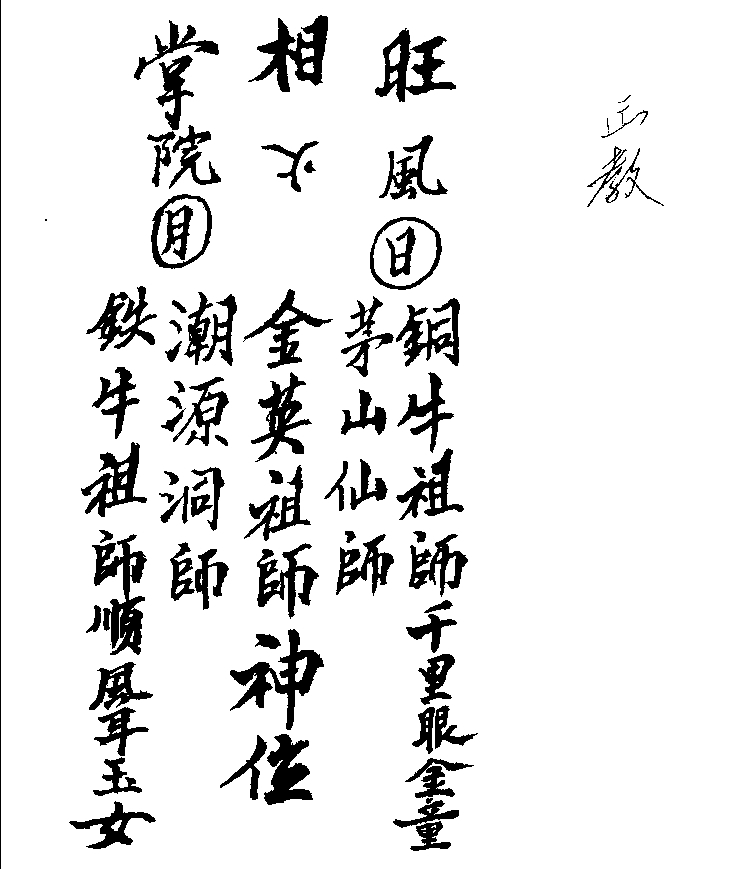 正教
旺相掌
風火院
日月
銅牛祖師千里眼金童
茅山仙師
金英祖師神位
潮源洞師
鉄牛祖師順風耳玉女